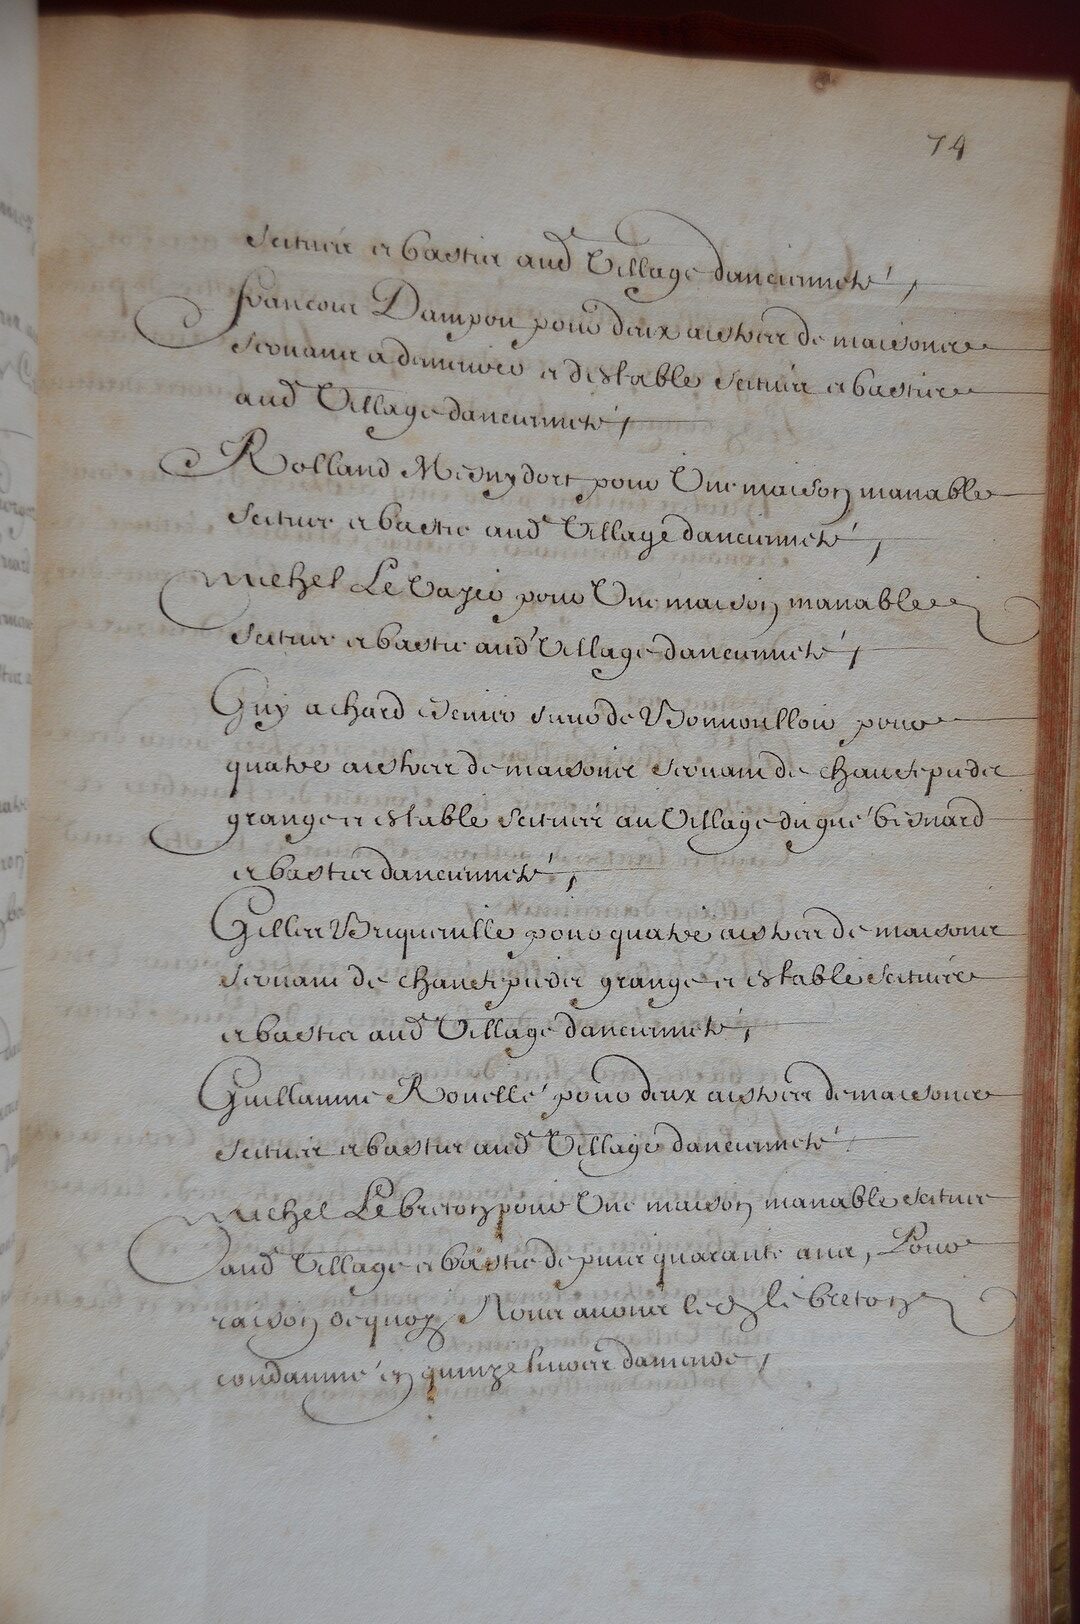 74
scituées et basties aud Village dancienneté,
francois Dampou pour deux aistres de maisons
servants a demeures et destable scitués et basties
aud Village danciennete,
Rolland Mesnydort pour Une maison manable
scituee et bastie aud Village danciennete,
Michel Le Vazer pour Une maison manable
scituee et bastie aud Village danciennete,
Guy achard Escuier sieur de Bonvouilloir pour
quatre aistres de maisons servant de chaudepieds
grange et estable scitués au Village du gué besnard
et basties danciennete,
Gilles Briqueville pour quatre aistres de maisons
servant de chaudepieds grange et estable scituées
et basties aud Village danciennete,
Guillaume Rouellé pour deux aistres de maisons
scitués et basties aud Village danciennete.
Michel Lebreton pour Une maison manable scituee
aud Village et bastie depuis quarante ans, Pour
raison dequoy Nous avons led le breton
condamné en quinze livres damende,